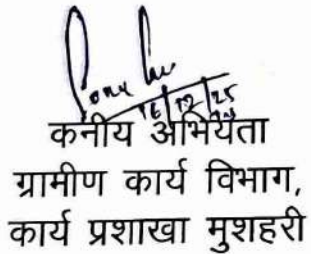 16/12/25
कनीय अभियंता
ग्रामीण कार्य विभाग,
कार्य प्रशाखा मुशहरी